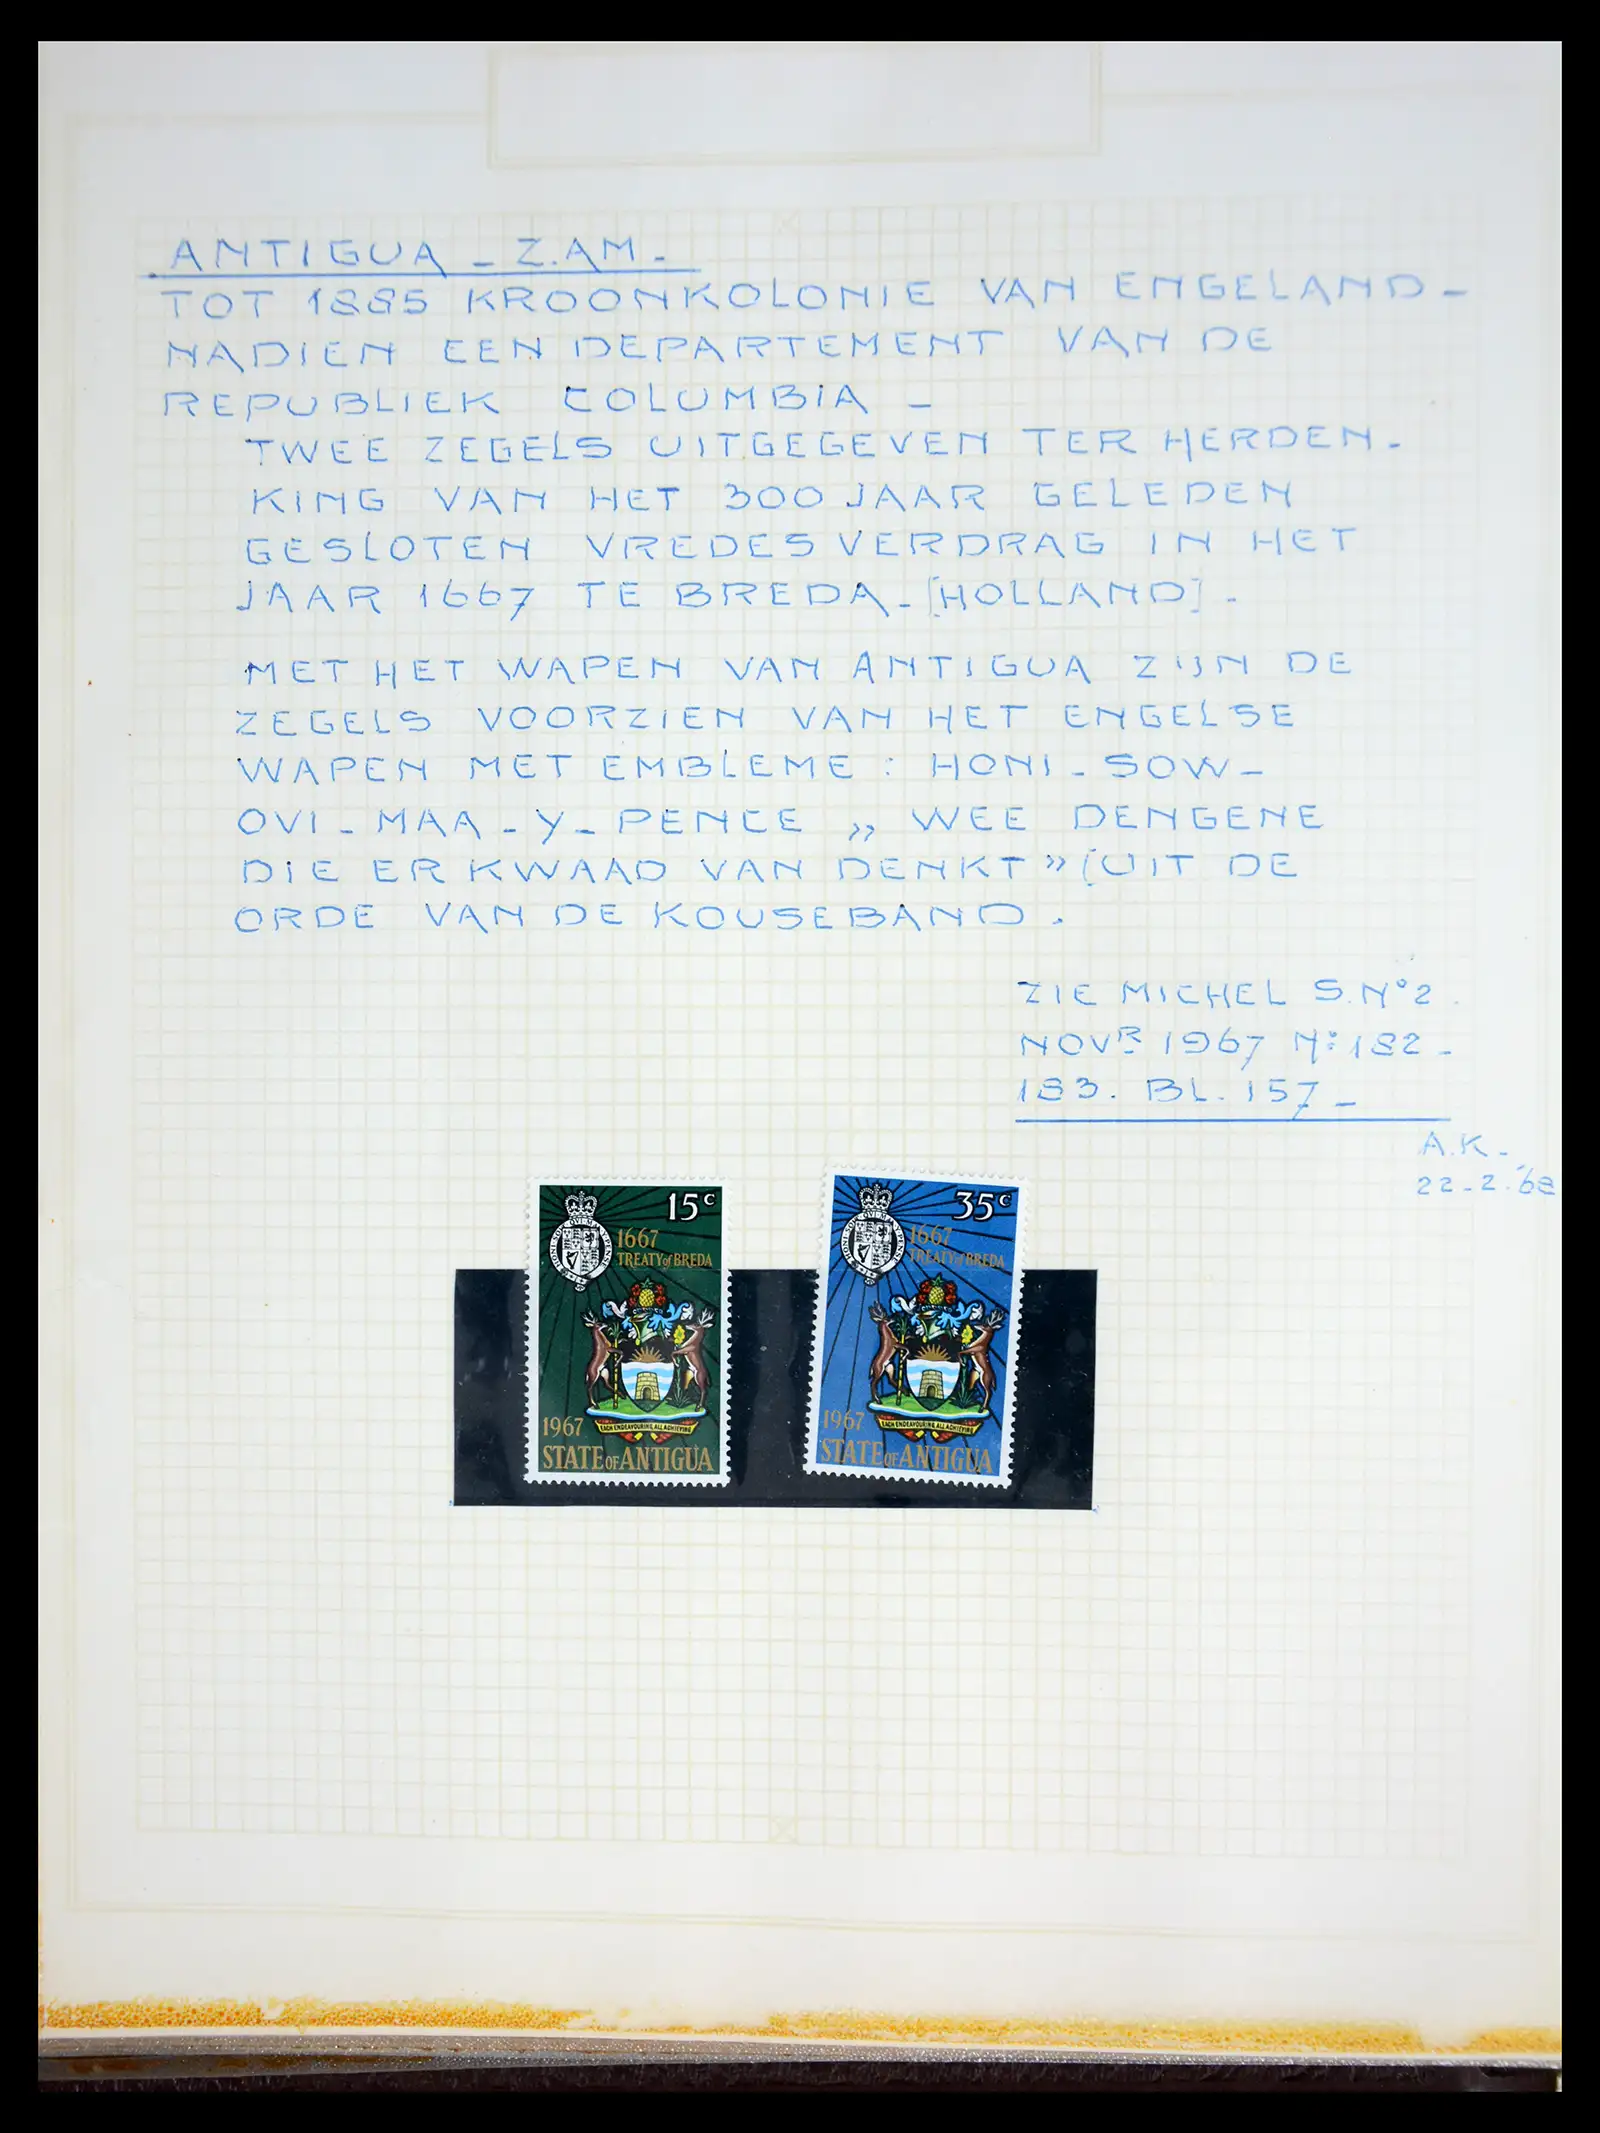 ANTIGUA - Z.AM.
TOT 1885 KROONKOLONIE VAN ENGELAND -
NADIEN EEN DEPARTEMENT VAN DE
REPUBLIEK COLUMBIA -
TWEE ZEGELS UITGEGEVEN TER HERDEN-
KING VAN HET 300 JAAR GELEDEN
GESLOTEN VREDESVERDRAG IN HET
JAAR 1667 TE BREDA - [HOLLAND] -
MET HET WAPEN VAN ANTIGUA ZIJN DE
ZEGELS VOORZIEN VAN HET ENGELSE
WAPEN MET EMBLEME : HONI - SOW -
OVI - MAA - Y - PENCE „ WEE DENGENE
DIE ER KWAAD VAN DENKT” (UIT DE
ORDE VAN DE KOUSEBAND .
ZIE MICHEL S.N° 2.
NOVR 1967 N: 182 -
183. BL. 157 -
A.K. -
22-2-'68
15c
1667
TREATY of BREDA
EACH ENDEAVOURING ALL ACHIEVING
1967
STATE OF ANTIGUA
35c
1667
TREATY of BREDA
EACH ENDEAVOURING ALL ACHIEVING
1967
STATE OF ANTIGUA